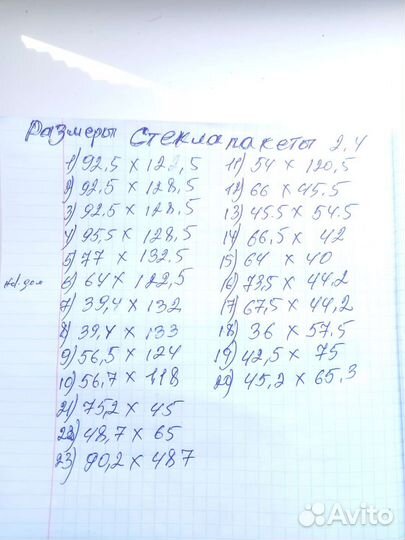 Размеры Стеклапакеты 2,4
1) 92,5 х 122,5
2) 92,5 х 128,5
3) 92,5 х 128,5
4) 95,5 х 128,5
5) 77 х 132,5
6) 64 х 122,5
7) 39,4 х 132
8) 39,4 х 133
9) 56,5 х 124
10) 56,7 х 118
21) 75,2 х 45
22) 48,7 х 65
23) 90,2 х 487
11) 54 х 120,5
12) 66 х 45,5
13) 45,5 х 54,5
14) 66,5 х 42
15) 64 х 40
16) 73,5 х 44,2
17) 67,5 х 44,2
18) 36 х 57,5
19) 42,5 х 75
20) 45,2 х 65,3
Avito